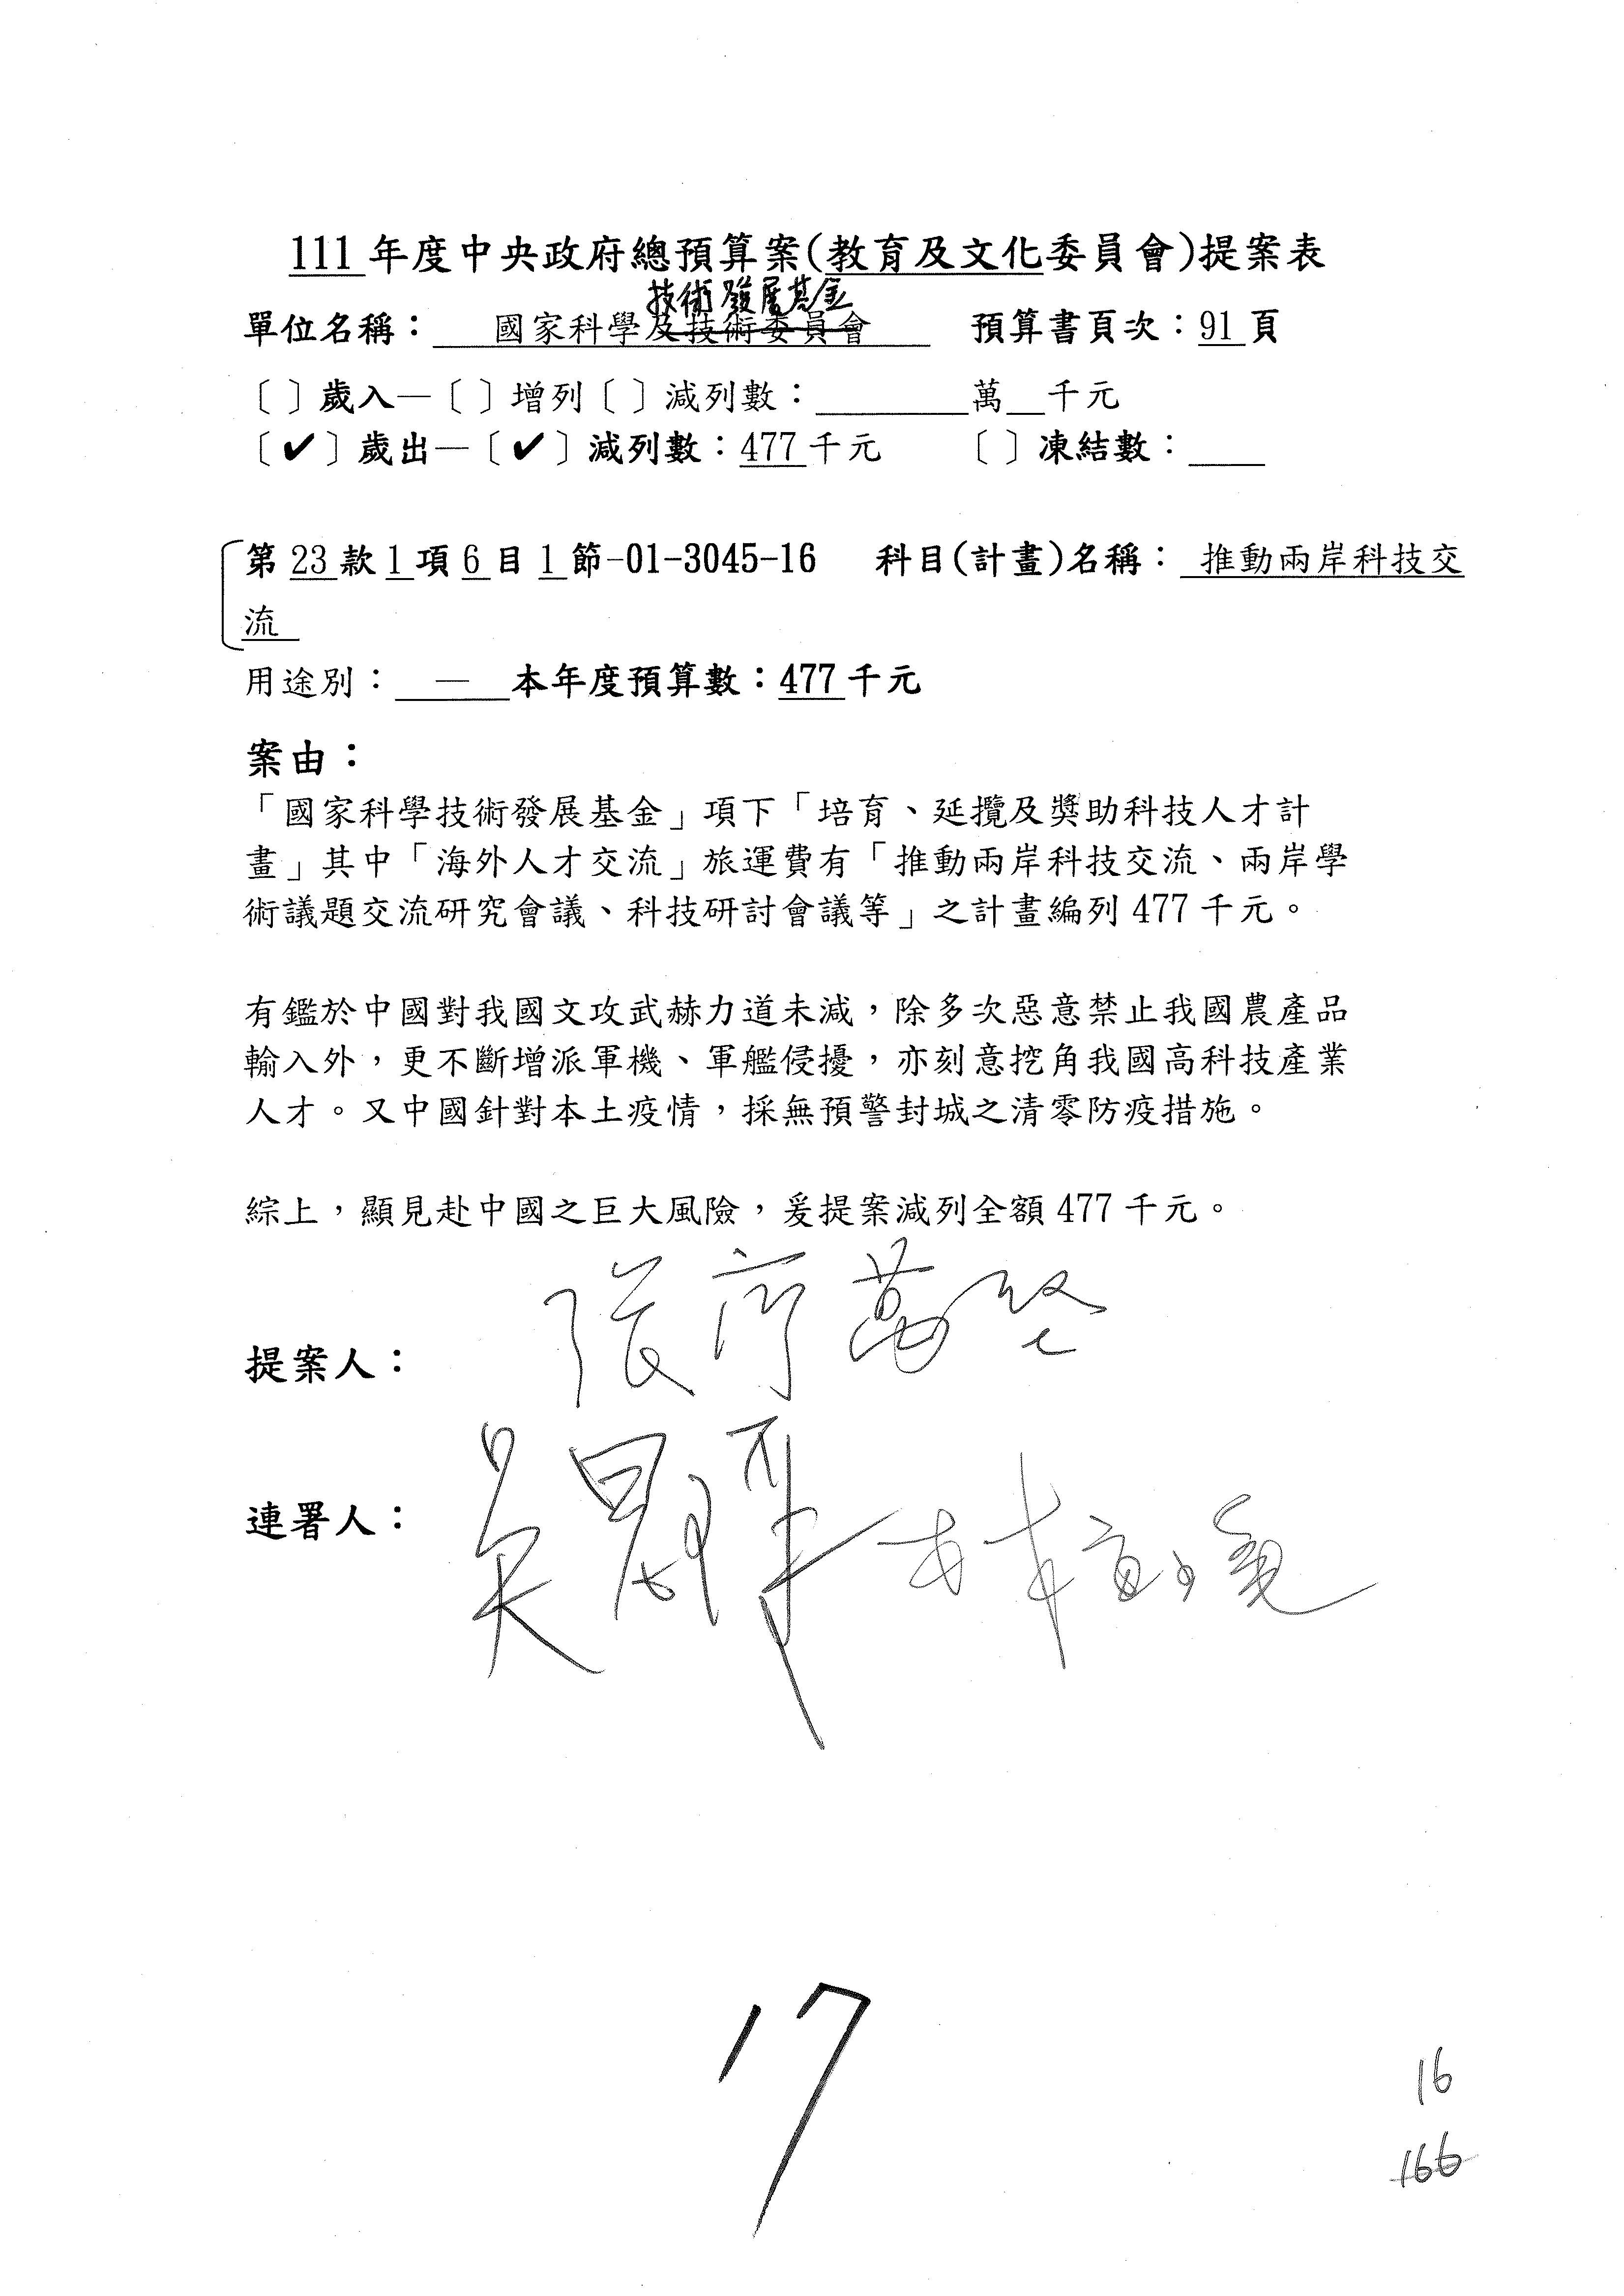 111年度中央政府總預算案(教育及文化委員會)提案表
技術發展基金
單位名稱： 國家科學及技術委員會 預算書頁次：91頁
〔 〕歲入—〔 〕增列〔 〕減列數：＿＿＿＿萬＿千元
〔✔〕歲出—〔✔〕減列數：477千元 〔 〕凍結數：＿＿
第23款1項6目1節-01-3045-16 科目(計畫)名稱： 推動兩岸科技交
流
用途別： — 本年度預算數：477千元
案由：
「國家科學技術發展基金」項下「培育、延攬及獎助科技人才計
畫」其中「海外人才交流」旅運費有「推動兩岸科技交流、兩岸學
術議題交流研究會議、科技研討會議等」之計畫編列477千元。
有鑑於中國對我國文攻武赫力道未減，除多次惡意禁止我國農產品
輸入外，更不斷增派軍機、軍艦侵擾，亦刻意挖角我國高科技產業
人才。又中國針對本土疫情，採無預警封城之清零防疫措施。
綜上，顯見赴中國之巨大風險，爰提案減列全額477千元。
張廖萬堅
提案人：
連署人： 吳思瑤 林宜瑾
17
16
166